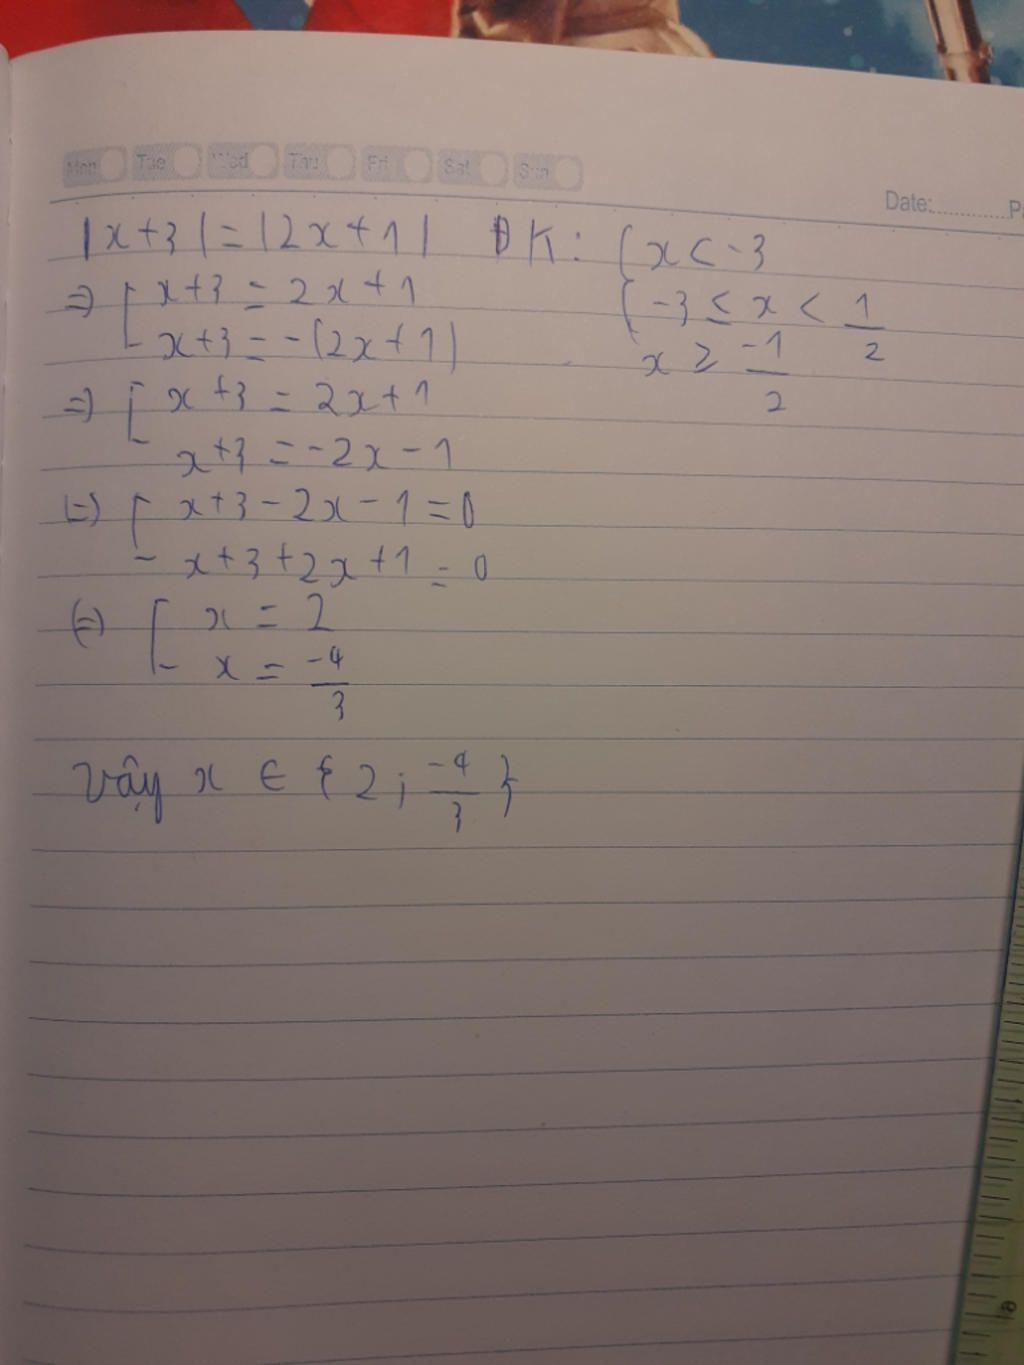 Mon Tue Wed Thu Fri Sat Sun
Date:............P
|x+3|=|2x+1| ĐK: { x < -3
=> [ x+3 = 2x+1 { -3 ≤ x < 1/2
x+3 = -(2x+1) x ≥ -1/2
=> [ x+3 = 2x+1
x+3 = -2x-1
(=) [ x+3-2x-1=0
x+3+2x+1=0
(=) [ x = 2
x = -4/3
Vậy x ∈ {2; -4/3}